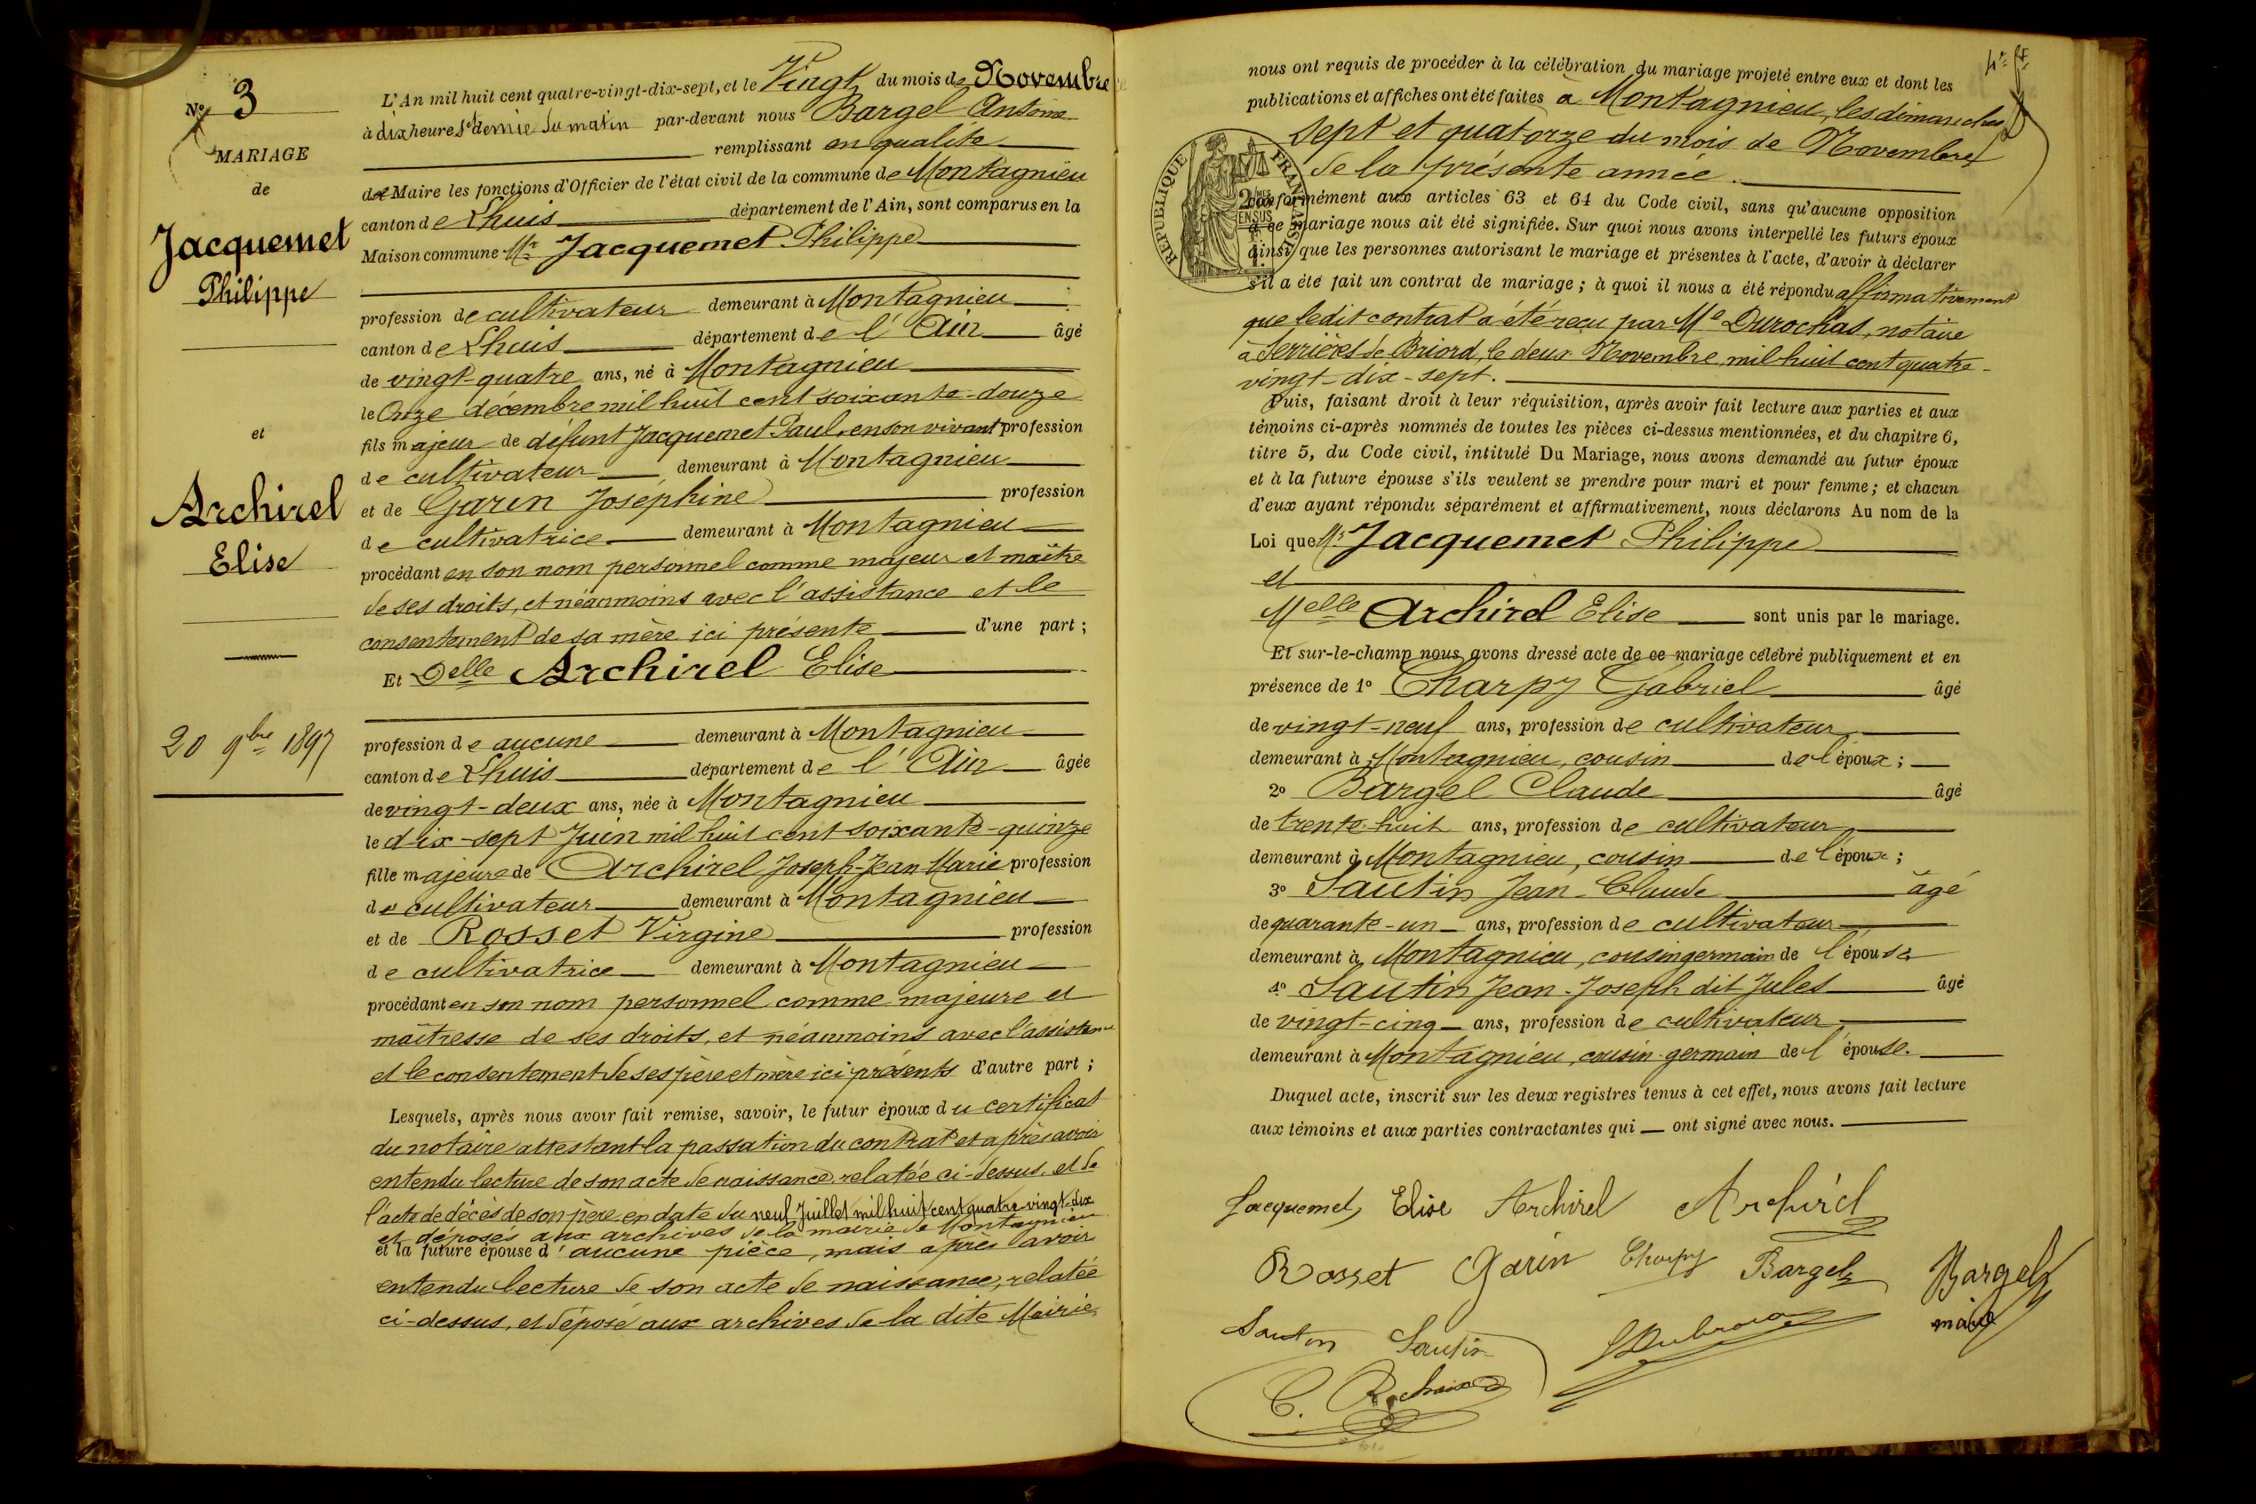 N° 3
MARIAGE
de
Jacquemet
Philippe
et
Archirel
Elise
20 9bre 1897
L'An mil huit cent quatre-vingt-dix-sept, et le Vingt du mois de Novembre
à dix heures et demie du matin par-devant nous Bargel Antoine
remplissant en qualité
de Maire les fonctions d'Officier de l'état civil de la commune de Montagnieu
canton de Lhuis département de l'Ain, sont comparus en la
Maison commune Mr Jacquemet Philippe
profession de cultivateur demeurant à Montagnieu
canton de Lhuis département de l'Ain âgé
de vingt-quatre ans, né à Montagnieu
le Onze décembre mil huit cent soixante-douze
fils majeur de défunt Jacquemet Paul, en son vivant profession
de cultivateur demeurant à Montagnieu
et de Garin Joséphine profession
de cultivatrice demeurant à Montagnieu
procédant en son nom personnel comme majeur et maître
de ses droits, et néanmoins avec l'assistance et le
consentement de sa mère ici présente d'une part ;
Et Delle Archirel Elise
profession de aucune demeurant à Montagnieu
canton de Lhuis département de l'Ain âgée
de vingt-deux ans, née à Montagnieu
le dix-sept Juin mil huit cent soixante-quinze
fille majeure de Archirel Joseph-Jean Marie profession
de cultivateur demeurant à Montagnieu
et de Rosset Virgine profession
de cultivatrice demeurant à Montagnieu
procédant en son nom personnel comme majeure et
maîtresse de ses droits, et néanmoins avec l'assistance
et le consentement de ses père et mère ici présents d'autre part ;
Lesquels, après nous avoir fait remise, savoir, le futur époux du certificat
du notaire attestant la passation du contrat et après avoir
entendu lecture de son acte de naissance relatée ci-dessus, et de
l'acte de décès de son père en date du neuf Juillet mil huit cent quatre-vingt-dix
et déposés aux archives de la mairie de Montagnieu
et la future épouse d'aucune pièce, mais après avoir
entendu lecture de son acte de naissance, relatée
ci-dessus, et déposé aux archives de la dite Mairie
nous ont requis de procéder à la célébration du mariage projeté entre eux et dont les
publications et affiches ont été faites à Montagnieu, les dimanches
sept et quatorze du mois de Novembre
de la présente année.
REPUBLIQUE FRANÇAISE
conformément aux articles 63 et 64 du Code civil, sans qu'aucune opposition
à ce mariage nous ait été signifiée. Sur quoi nous avons interpellé les futurs époux
ainsi que les personnes autorisant le mariage et présentes à l'acte, d'avoir à déclarer
s'il a été fait un contrat de mariage ; à quoi il nous a été répondu affirmativement
que ledit contrat a été reçu par Me Durochas, notaire
à Serrières de Briord, le deux Novembre mil huit cent quatre-
vingt-dix-sept.
Puis, faisant droit à leur réquisition, après avoir fait lecture aux parties et aux
témoins ci-après nommés de toutes les pièces ci-dessus mentionnées, et du chapitre 6,
titre 5, du Code civil, intitulé Du Mariage, nous avons demandé au futur époux
et à la future épouse s'ils veulent se prendre pour mari et pour femme ; et chacun
d'eux ayant répondu séparément et affirmativement, nous déclarons Au nom de la
Loi que Mr Jacquemet Philippe
et
Melle Archirel Elise sont unis par le mariage.
Et sur-le-champ nous avons dressé acte de ce mariage célébré publiquement et en
présence de 1° Charpy Gabriel âgé
de vingt-neuf ans, profession de cultivateur
demeurant à Montagnieu, cousin de l'époux ;
2° Bargel Claude âgé
de trente-huit ans, profession de cultivateur
demeurant à Montagnieu, cousin de l'époux ;
3° Sautin Jean-Claude âgé
de quarante-un ans, profession de cultivateur
demeurant à Montagnieu, cousin germain de l'épouse
4° Sautin Jean-Joseph dit Jules âgé
de vingt-cinq ans, profession de cultivateur
demeurant à Montagnieu, cousin germain de l'épouse.
Duquel acte, inscrit sur les deux registres tenus à cet effet, nous avons fait lecture
aux témoins et aux parties contractantes qui ont signé avec nous.
Jacquemet Elise Archirel Archirel
Rosset Garin Charpy Bargel Bargel
maire
Sautin Sautin
C. Rochaix